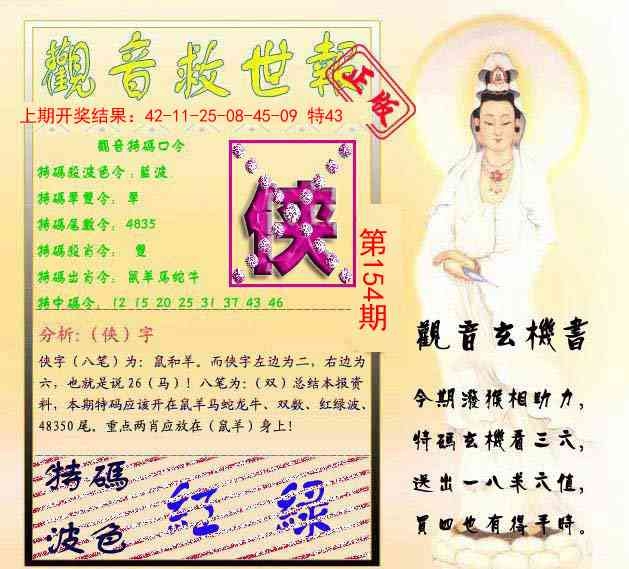 觀音救世報
正版
上期开奖结果：42-11-25-08-45-09 特43
觀音特碼口令
特碼殺波色令：藍波
特碼單雙令：單
特碼尾數令：4835
特碼殺肖令：雙
特碼出肖令：鼠羊馬蛇牛
特中碼令：12 15 20 25 31 37 43 46
侠
第154期
分析：（俠）字
俠字（八笔）为：鼠和羊。而俠字左边为二，右边为
六，也就是说26（马）！八笔为：（双）总结本报资
料，本期特码应该开在鼠羊马蛇龙牛、双数、红绿波、
48350尾。重点两肖应放在（鼠羊）身上！
特碼
波色
紅 綠
觀音玄機書
今期潑猴相助力，
特碼玄機看三六，
送出一八求六值，
買四也有得手時。